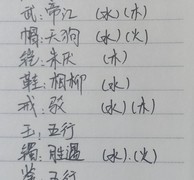 武:帝江 (水)(木)
帽:天狗 (水)(火)
铠:朱厌 (木)
鞋:相柳 (水)
戒:驳 (水)(木)
玉:五行
镯:胜遇 (水).(火)
五行